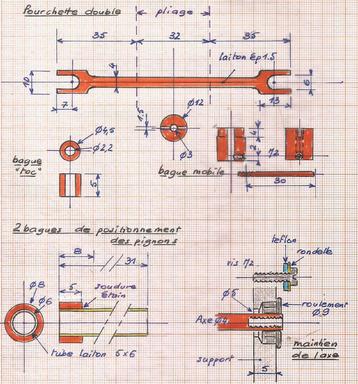 Fourchette double
pliage
35
32
35
4
laiton ép 1.5
10
6
7
13
1,5
ø12
ø3
ø4,5
ø2,2
bague
"toc"
5
4
2
72
bague mobile
30
2 bagues de positionnement
des pignons
8
31
5
soudure
étain
ø8
ø6
tube laiton 5x6
teflon
rondelle
vis 72
ø5
roulement
ø9
Axe ø4
maintien
de l'axe
support
5